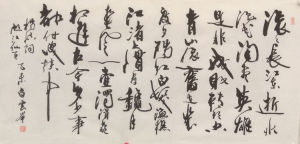 滚滚长江东逝水
浪花淘尽英雄
是非成败转头空
青山依旧在几
度夕阳红白发渔樵
江渚上惯看秋月
春风一壶浊酒喜
相逢古今多少事
都付笑谈中
杨慎词
临江仙